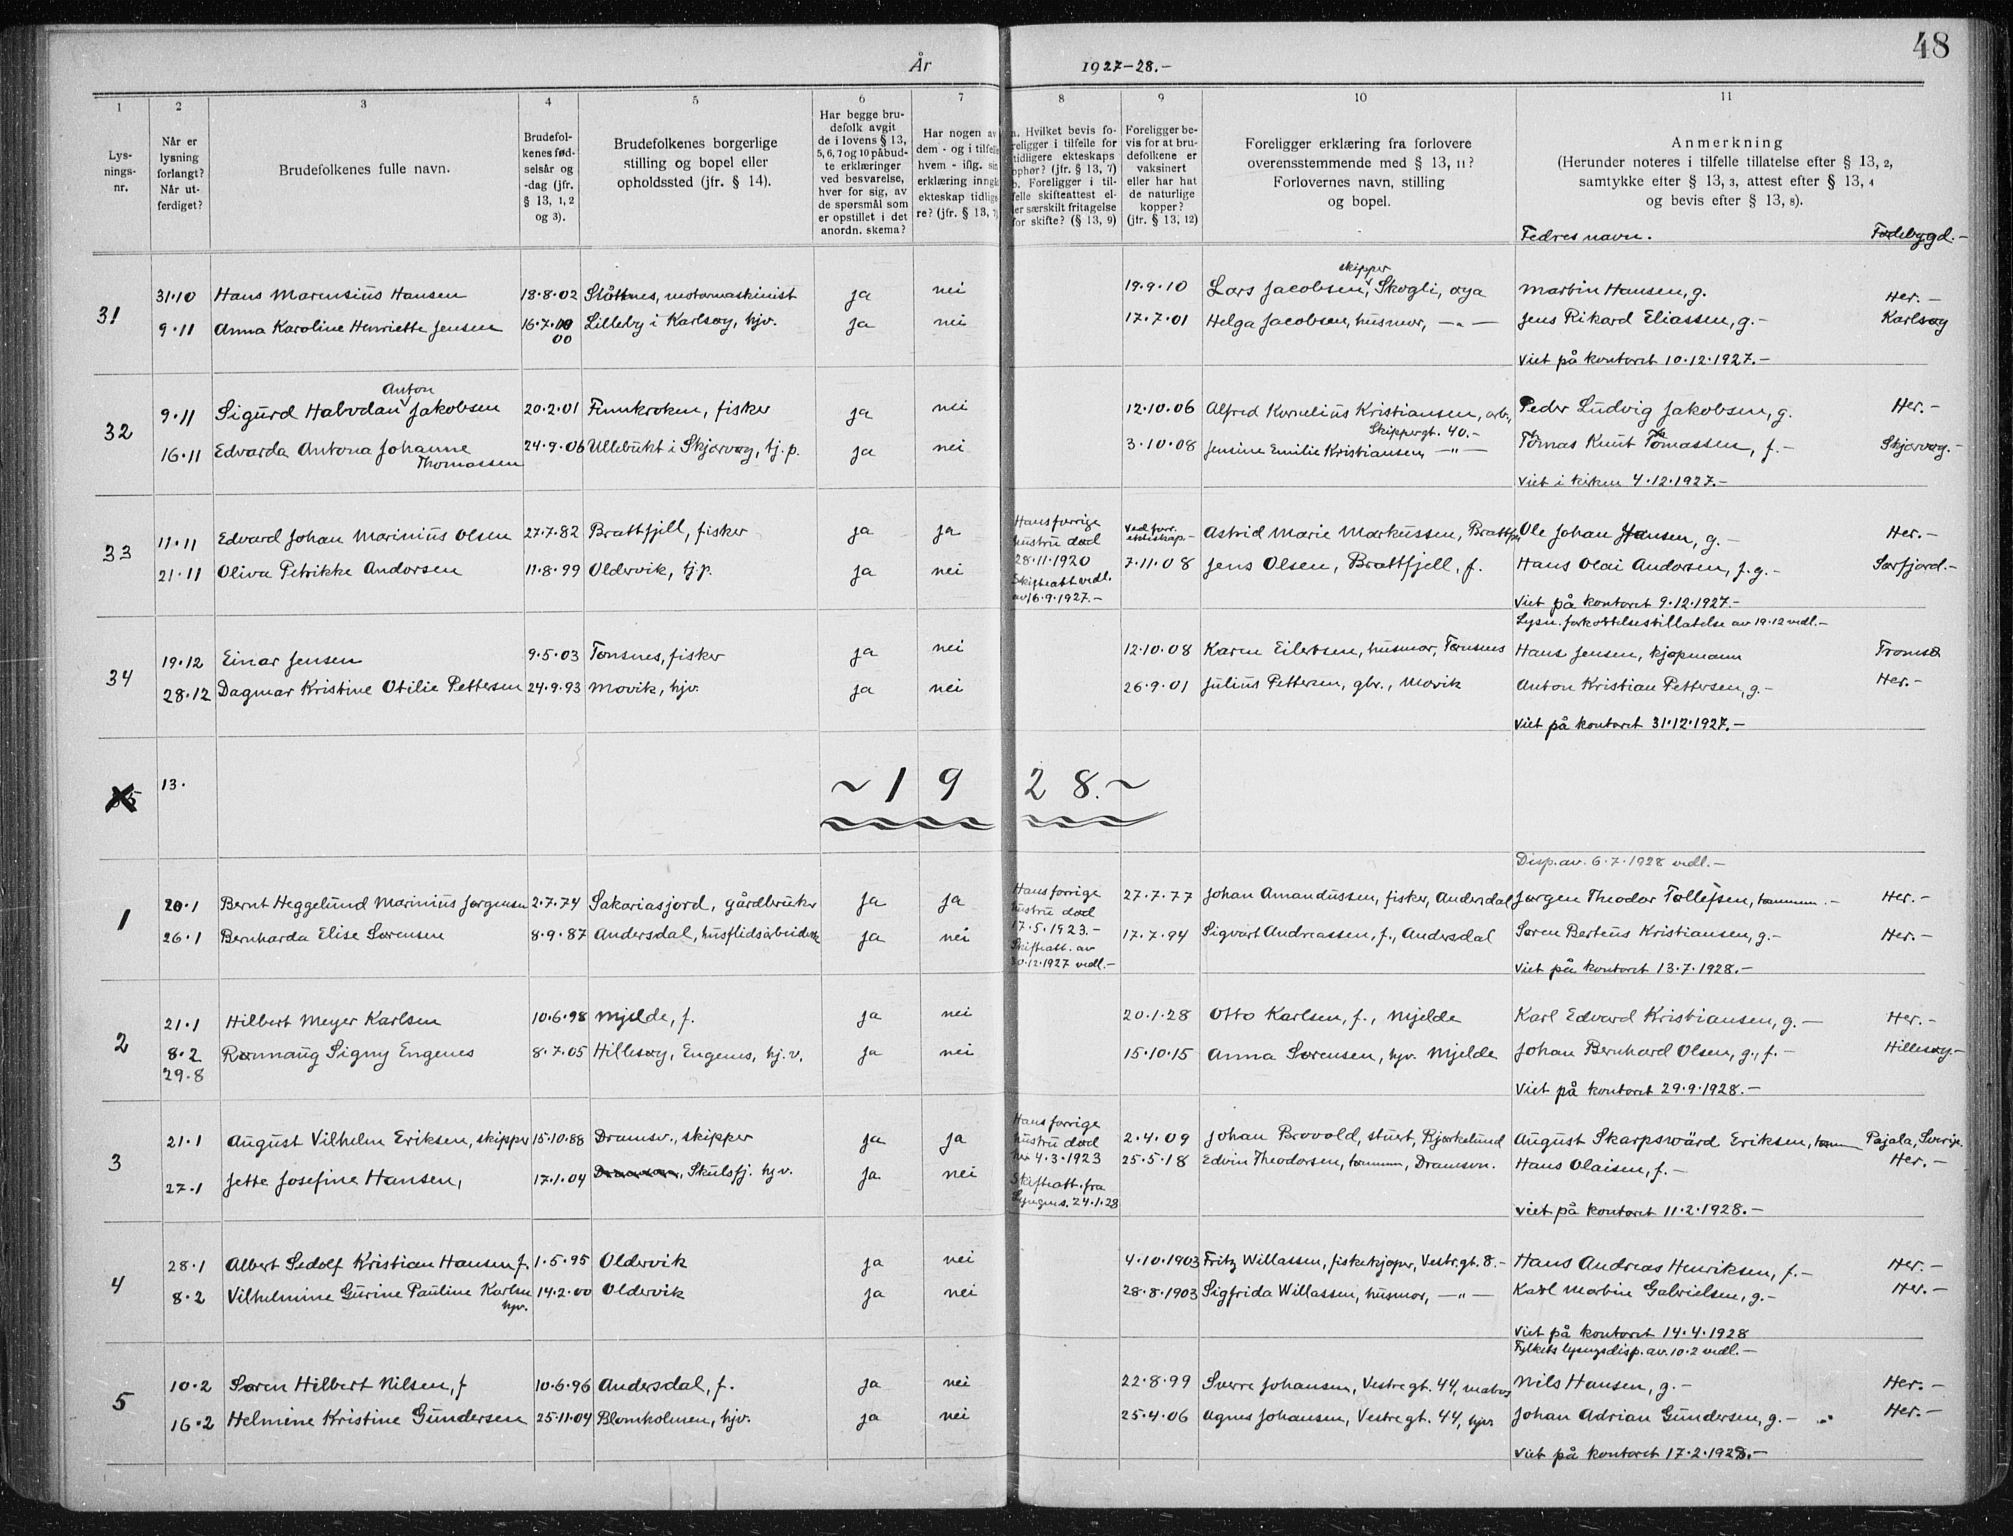 48
År 1927-28.-
1 2 3 4 5 6 7 8 9 10 11
Lys-
nings-
nr.
Når er
lysning
forlangt?
Når ut-
ferdiget?
Brudefolkenes fulle navn.
Brudefol-
kenes fød-
selsår og
-dag (jfr.
§ 13, 1, 2
og 3).
Brudefolkenes borgerlige
stilling og bopel eller
opholdssted (jfr. § 14).
Har begge bru-
defolk avgit
de i lovens § 13,
5, 6, 7 og 10 påbud-
te erklæringer
ved besvarelse,
hver for sig, av
de spørsmål som
er opstillet i det
anordn. skema?
Har nogen av
dem - og i tilfelle
hvem - iflg. sin
erklæring inngå
ekteskap tidlige
re? (jfr. § 13, 7)
a. Hvilket bevis fo-
religger i tilfelle for
tidligere ekteskaps
ophør? (jfr. § 13, 7)
b. Foreligger i til-
felle skifteattest el-
ler særskilt fritagelse
for skifte? (§ 13, 9)
Foreligger be-
vis for at bru-
defolkene er
vaksinert
eller har hat
de naturlige
kopper?
(jfr. § 13, 12)
Foreligger erklæring fra forlovere
overensstemmende med § 13, 11?
Forlovernes navn, stilling
og bopel.
Anmerkning
(Herunder noteres i tilfelle tillatelse efter § 13, 2,
samtykke efter § 13, 3, attest efter § 13, 4
og bevis efter § 13, 8).
Fedres navn. Fødebygd.-
31 31·10 Hans Marensius Hansen 18·8·02 Slåttnes, motormaskinist ja nei 19·9·10 Lars Jacobsen, skipper Skogli, øya Martin Hansen, g. Her.-
9·11 Anna Karoline Henriette Jensen 16·7·00 Lilleby i Karlsøy, hjv. ja nei 17·7·01 Helga Jacobsen, husmor, -„- Jens Rikard Eliassen, g.- Karlsøy
00
Viet på kontoret 10·12·1927.-
32 9·11 Sigurd Halvdan Anton Jakobsen 20·2·01 Finnkroken, fisker ja nei 12·10·06 Alfred Kornelius Kristiansen, arb., Peder Ludvig Jakobsen, g. Her.-
Skippergt. 40.-
16·11 Edvarda Antona Johanne 24·9·06 Ullebukt i Skjervøy, tj.p. ja nei 3·10·08 Jensine Emilie Kristiansen, -„- Tomas Knut Tomassen, f.- Skjervøy.-
Thomassen
Viet i kirken 4·12·1927.-
33 11·11 Edvard Johan Marinius Olsen 27·7·82 Brattfjell, fisker ja ja Hans forrige Ved forr. Astrid Marie Markussen, Brattfj. Ole Johan Hansen, g.- Her.-
hustru død ekteskap-
21·11 Oliva Petrikke Andersen 11·8·99 Oldervik, tj.p. ja nei 28·11·1920 7·11·08 Jens Olsen, Brattfjell, f. Hans Olai Andersen, f.g.- Sørfjord.-
Skifteatt vedl.
av 16·9·1927.-
Viet på kontoret 9·12·1927.-
Lysn. forkortelsestillatelse av 19·12 vedl.-
34 19·12 Einar Jensen 9·5·03 Tønsnes, fisker ja nei 12·10·08 Karen Eilertsen, husmor, Tønsnes Hans Jensen, kjøpmann Tromsø
28·12 Dagmar Kristine Otilie Pettersen 24·9·93 Movik, hjv. ja nei 26·9·01 Julius Pettersen, gbr., Movik Anton Kristian Pettersen, g.- Her.-
Viet på kontoret 31·12·1927.-
35 13·
~ 1 9 2 8. ~
Disp. av. 6·7·1928 vedl.-
1 20·1 Bernt Heggelund Marinius Jørgensen 2·7·74 Sakariasjord, gårdbruker ja ja Hans forrige 27·7·77 Johan Amandussen, fisker, Andersdal Jørgen Theodor Tollefsen, tømmm.- Her.-
hustru død
26·1 Bernharda Elise Sørensen 8·9·87 Andersdal, husflidsarbeiderske ja nei 17·5·1923.- 17·7·94 Sigvart Andreassen, f., Andersdal Søren Berteus Kristiansen, g.- Her.-
Skifteatt. av
30·12·1927 vedl.-
Viet på kontoret 13·7·1928.-
2 21·1 Hilbert Meyer Karlsen 10·6·98 Mjelde, f. ja nei 20·1·28 Otto Karlsen, f., Mjelde Karl Edvard Kristiansen, g.- Her.-
8·2 Rønnaug Signy Engenes 8·7·05 Hillesøy, Engenes, hj.v. ja nei 15·10·15 Anna Sørensen, hjv. Mjelde Johan Bernhard Olsen, g., f.- Hillesøy.-
29·8
Viet på kontoret 29·9·1928.-
3 21·1 August Vilhelm Eriksen, skipper 15·10·88 Dramsv., skipper ja ja Hans forrige 2·4·09 Johan Brovold, stuert, Bjørkelund August Skarpswärd Eriksen, tømm Pajala, Sverige
hustru død
4·3·1923 25·5·18 Edvin Theodorsen, tømmm., Dramsvn. Hans Olaisen, f.- Her.-
27·1 Jette Josefine Hansen, 17·1·04 Dramsvn, Skulsfj. hjv. ja nei Skifteatt. fra
Lyngens. 24·1·28
Viet på kontoret 11·2·1928.-
4 28·1 Albert Sedolf Kristian Hansen f. 1·5·95 Oldervik ja nei 4·10·1903 Fritz Willassen, fiskekjøper, Vestr.gt. 8.- Hans Andreas Henriksen, f.- Her.-
8·2 Vilhelmine Gurine Pauline Karlsen 14·2·00 Oldervik ja nei 28·8·1903 Sigfrida Willassen, husmor, -„- Karl Martin Gabrielsen, g.- Her.-
hjv.
Viet på kontoret 14·4·1928
Fylkets lysngsdisp. av. 10·2 vedl.-
5 10·2 Søren Hilbert Nilsen, f 10·6·96 Andersdal, f. ja nei 22·8·99 Sverre Johansen, Vestregt. 44, matros Nils Hansen, g.- Her.-
16·2 Helmine Kristine Gundersen 25·11·04 Blomholmen, hjv. ja nei 25·4·06 Agnes Johansen, Vestregt. 44, hjv. Johan Adrian Gundersen, g.- Her.-
Viet på kontoret 17·2·1928.-